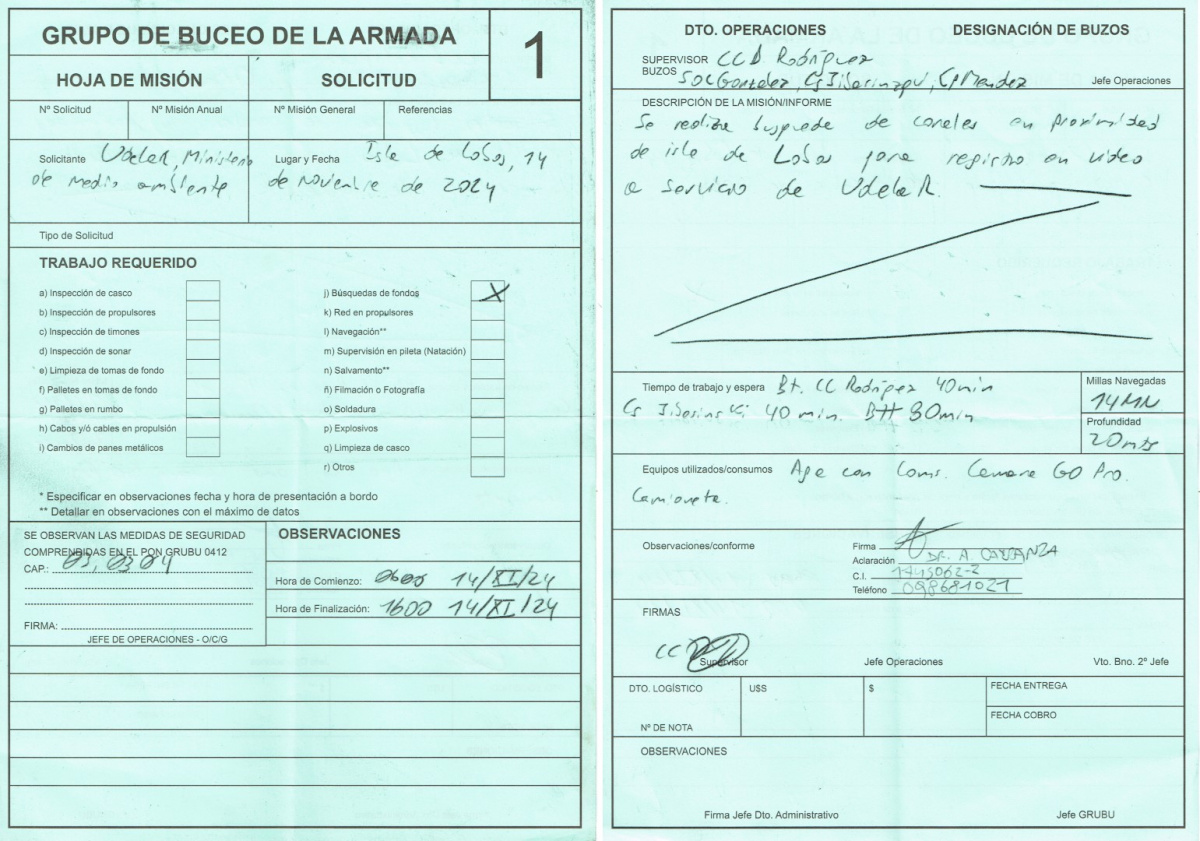 GRUPO DE BUCEO DE LA ARMADA
1
HOJA DE MISIÓN
SOLICITUD
Nº Solicitud
Nº Misión Anual
Nº Misión General
Referencias
Solicitante UdelaR, Ministerio
de Medio ambiente
Lugar y Fecha Isla de Lobos, 14
de Noviembre de 2024
Tipo de Solicitud
TRABAJO REQUERIDO
a) Inspección de casco
b) Inspección de propulsores
c) Inspección de timones
d) Inspección de sonar
e) Limpieza de tomas de fondo
f) Palletes en tomas de fondo
g) Palletes en rumbo
h) Cabos y/ó cables en propulsión
i) Cambios de panes metálicos
j) Búsquedas de fondos X
k) Red en propulsores
l) Navegación**
m) Supervisión en pileta (Natación)
n) Salvamento**
ñ) Filmación o Fotografía
o) Soldadura
p) Explosivos
q) Limpieza de casco
r) Otros
* Especificar en observaciones fecha y hora de presentación a bordo
** Detallar en observaciones con el máximo de datos
SE OBSERVAN LAS MEDIDAS DE SEGURIDAD
COMPRENDIDAS EN EL PON GRUBU 0412
CAP.: 03, 0304
FIRMA:
JEFE DE OPERACIONES - O/C/G
OBSERVACIONES
Hora de Comienzo: 0600 14/XI/24
Hora de Finalización: 1600 14/XI/24
DTO. OPERACIONES
DESIGNACIÓN DE BUZOS
SUPERVISOR CC D Rodríguez
BUZOS SOC Gonzalez, CP Mendez
Jefe Operaciones
DESCRIPCIÓN DE LA MISIÓN/INFORME
Se realiza busqueda de corales en proximidad
de isla de Lobos para registro en video
a servicio de UdelaR.
Tiempo de trabajo y espera Bt. CC Rodríguez 40min
Cs 40 min. Btt 80min
Millas Navegadas
14MN
Profundidad
20mts
Equipos utilizados/consumos Aga con Coms. Camara GO Pro.
Camioneta.
Observaciones/conforme
Firma
Aclaración DR. A. CARRANZA
C.I. 1749062-2
Teléfono 098681021
FIRMAS
CC
Supervisor
Jefe Operaciones
Vto. Bno. 2º Jefe
DTO. LOGÍSTICO
Nº DE NOTA
U$S
$
FECHA ENTREGA
FECHA COBRO
OBSERVACIONES
Firma Jefe Dto. Administrativo
Jefe GRUBU